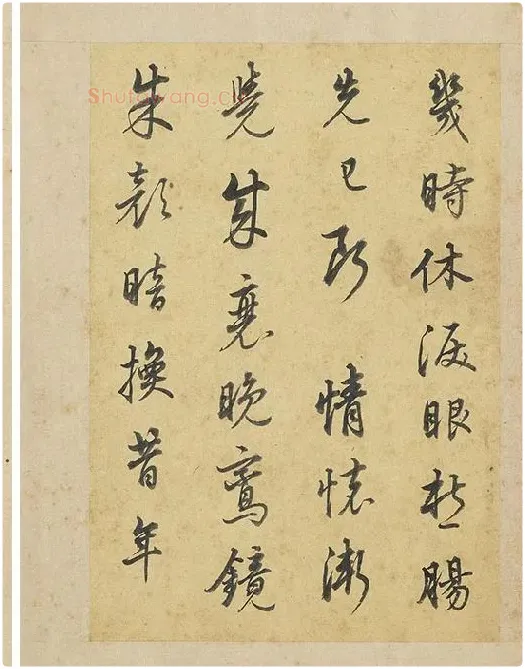 幾時休淚眼愁腸
先已斷 情懷漸
覺成衰晚鸞鏡
朱顏暗換昔年